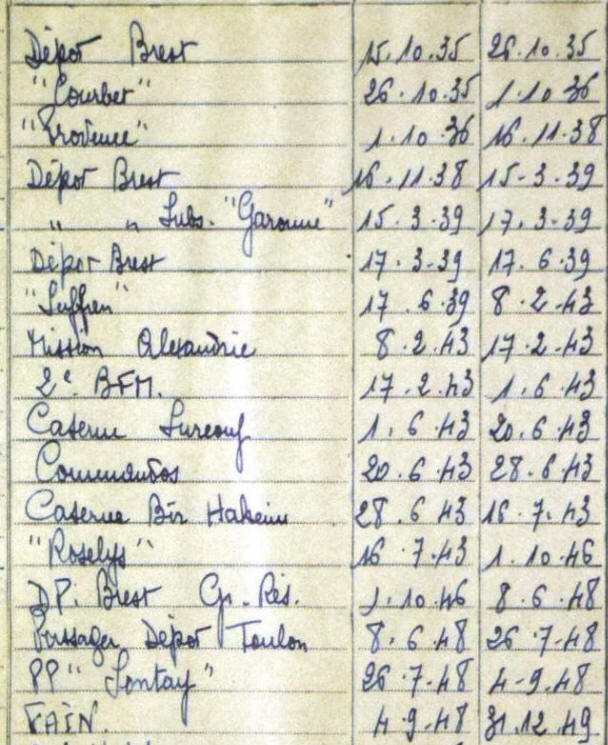 Dépot Brest 15.10.35 26.10.35
"Courbet" 26.10.35 1.10.36
"Provence" 1.10.36 16.11.38
Dépot Brest 16.11.38 15-3-39
" " Subs. "Garonne" 15.3.39 17.3-39
Dépot Brest 17.3-39 17.6.39
"Suffren" 17.6.39 8.2.43
Mission Alexandrie 8.2.43 17.2.43
2e BFM. 17.2.43 1.6.43
Caserne Surcouf 1.6.43 20.6.43
Commandos 20.6.43 28.6.43
Caserne Bir Hakeim 28.6.43 16.7.43
"Roselys" 16.7.43 1.10.46
DP. Brest Gr. Rés. 1.10.46 8.6.48
Passager Dépot Toulon 8.6.48 26.7.48
PP "Sontay" 26.7.48 4-9.48
FAIN. 4.9.48 31.12.49